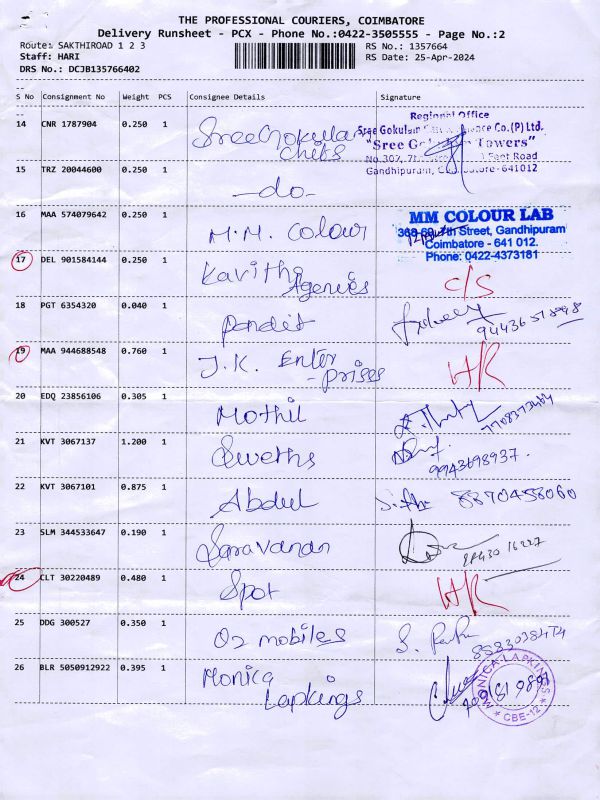 THE PROFESSIONAL COURIERS, COIMBATORE
Delivery Runsheet - PCX - Phone No.:0422-3505555 - Page No.:2
Route: SAKTHIROAD 1 2 3 RS No.: 1357664
Staff: HARI RS Date: 25-Apr-2024
DRS No.: DCJB135766402
S No Consignment No Weight PCS Consignee Details Signature
14 CNR 1787904 0.250 1 Sree Gokulam Chits
Regional Office
Sree Gokulam Co.(P) Ltd.
"Sree Towers"
No 307, Feet Road
Gandhipuram, Coimbatore-641012
15 TRZ 20044600 0.250 1 -do-
16 MAA 574079642 0.250 1 M.M. Colour
MM COLOUR LAB
Street, Gandhipuram
Coimbatore - 641 012.
Phone: 0422-4373181
17 DEL 901584144 0.250 1 Kavitha Agencies C/S
18 PGT 6354320 0.040 1 Pandit
19 MAA 944688548 0.760 1 J.K. Enter-prises HR
20 EDQ 23856106 0.305 1 Mothil
21 KVT 3067137 1.200 1 Swetha 9943698937.
22 KVT 3067101 0.875 1 Abdul 8870458060
23 SLM 344533647 0.190 1 Saravanan
24 CLT 30220489 0.480 1 Spot HR
25 DDG 300527 0.350 1 O2 mobiles
26 BLR 5050912922 0.395 1 Monica Lapkings
MONICA LAPKINGS
CBE-12